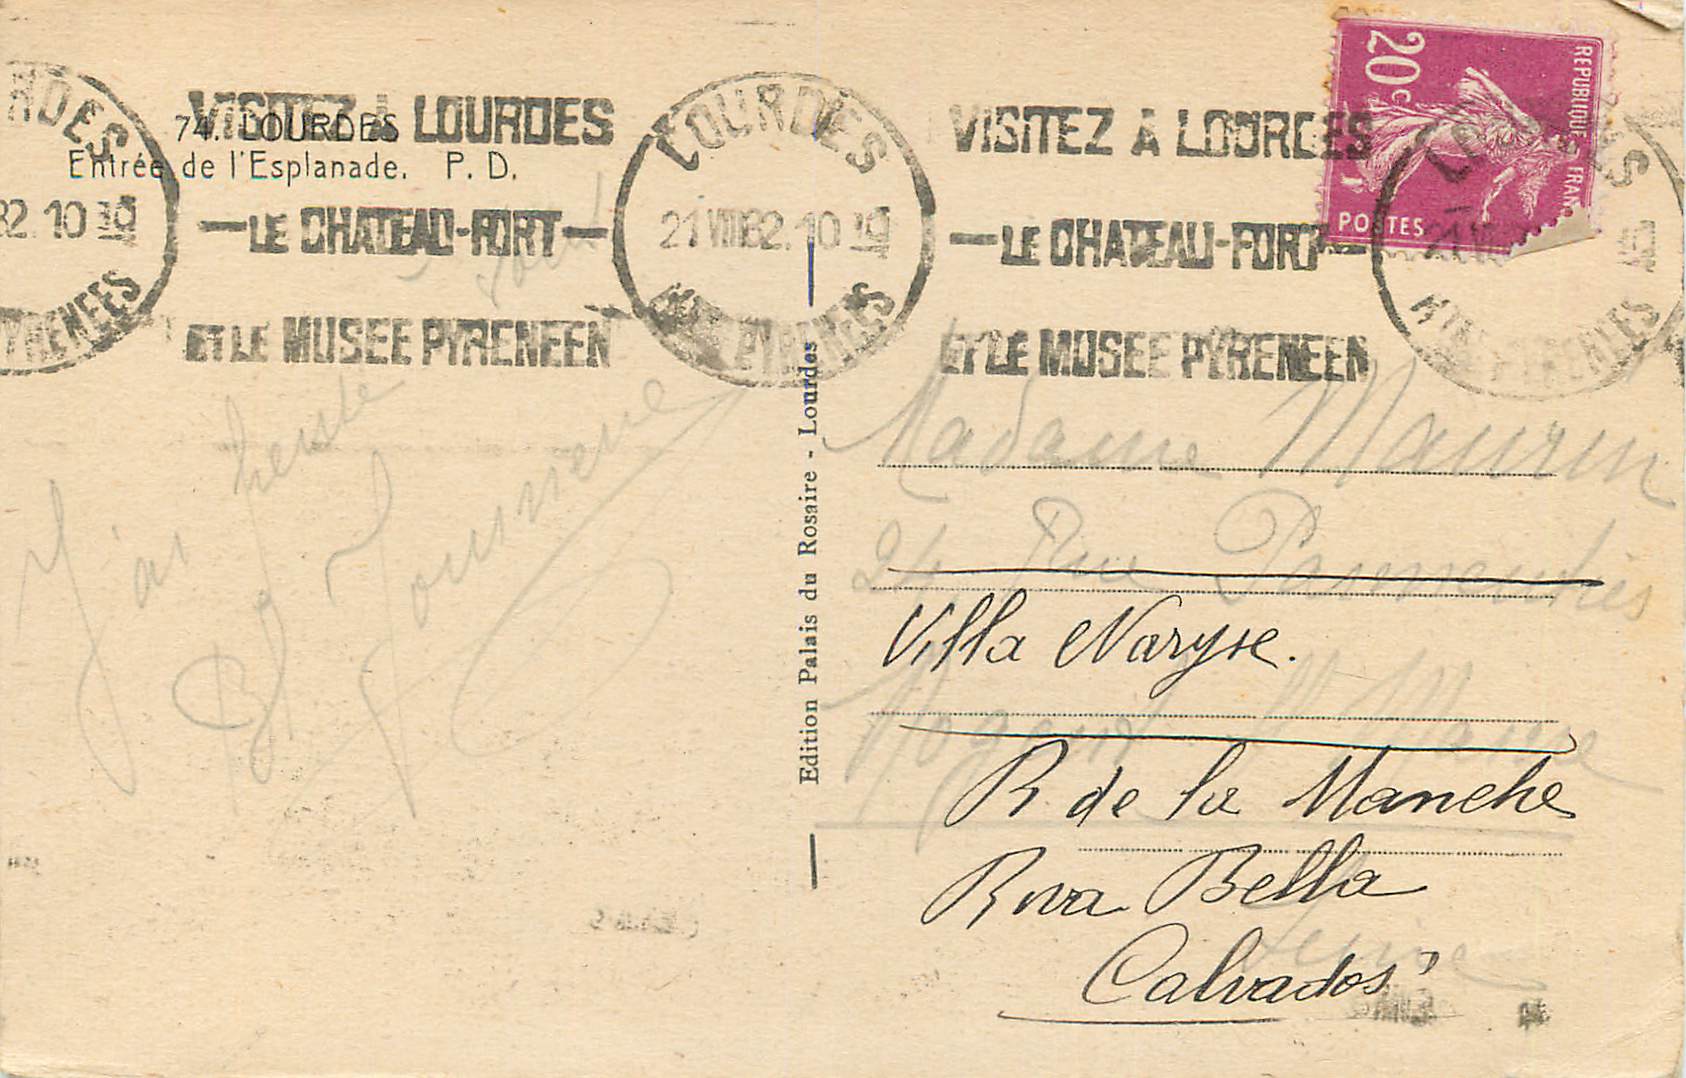 VISITEZ À LOURDES
LE CHATEAU-FORT
ET LE MUSEE PYRENEEN
LOURDES
21 VIII 32. 10
HTES PYRENEES
VISITEZ À LOURDES
LE CHATEAU-FORT
ET LE MUSEE PYRENEEN
LOURDES
HTES PYRENEES
RDES
32. 10
PYRENEES
74. LOURDES
Entrée de l'Esplanade. P. D.
20c
REPUBLIQUE FRAN
POSTES
Edition Palais du Rosaire - Lourdes
J'ai
Madame Maurin
24 Rue
Villa Maryse.
Nogent s/ Marne
R de la Manche
Riva Bella
Seine
Calvados